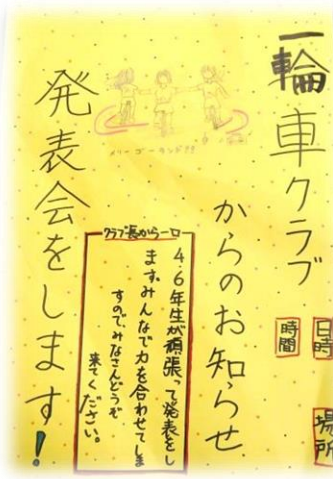 一輪車クラブ
からのお知らせ
発表会をします!
日時
場所
時間
メリーゴーランド!!
クラブ長から一口
4.6年生が頑張って発表をし
ます。みんなで力を合わせてしま
すので、みなさんどうぞ
来てください。